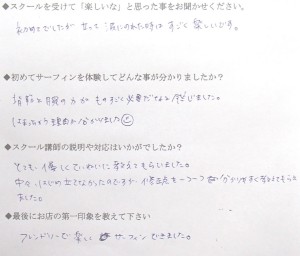 ◆スクールを受けて「楽しいな」と思った事をお聞かせください。
初めてでしたが 立って 波にのれた時は すごく楽しいです。
◆初めてサーフィンを体験してどんな事が分かりましたか?
背筋と腕の力が ものすごく必要だなと感じました。
はまっちゃう理由が分かりました
◆スクール講師の説明や対応はいかがでしたか?
とても優しくていねいに教えてもらいました。
中々、はじめ立てなかったのですが 修正点を一つ一つ分かりやすく教えてもらえ
ました。
◆最後にお店の第一印象を教えて下さい
フレンドリーで楽しく サーフィンできました。